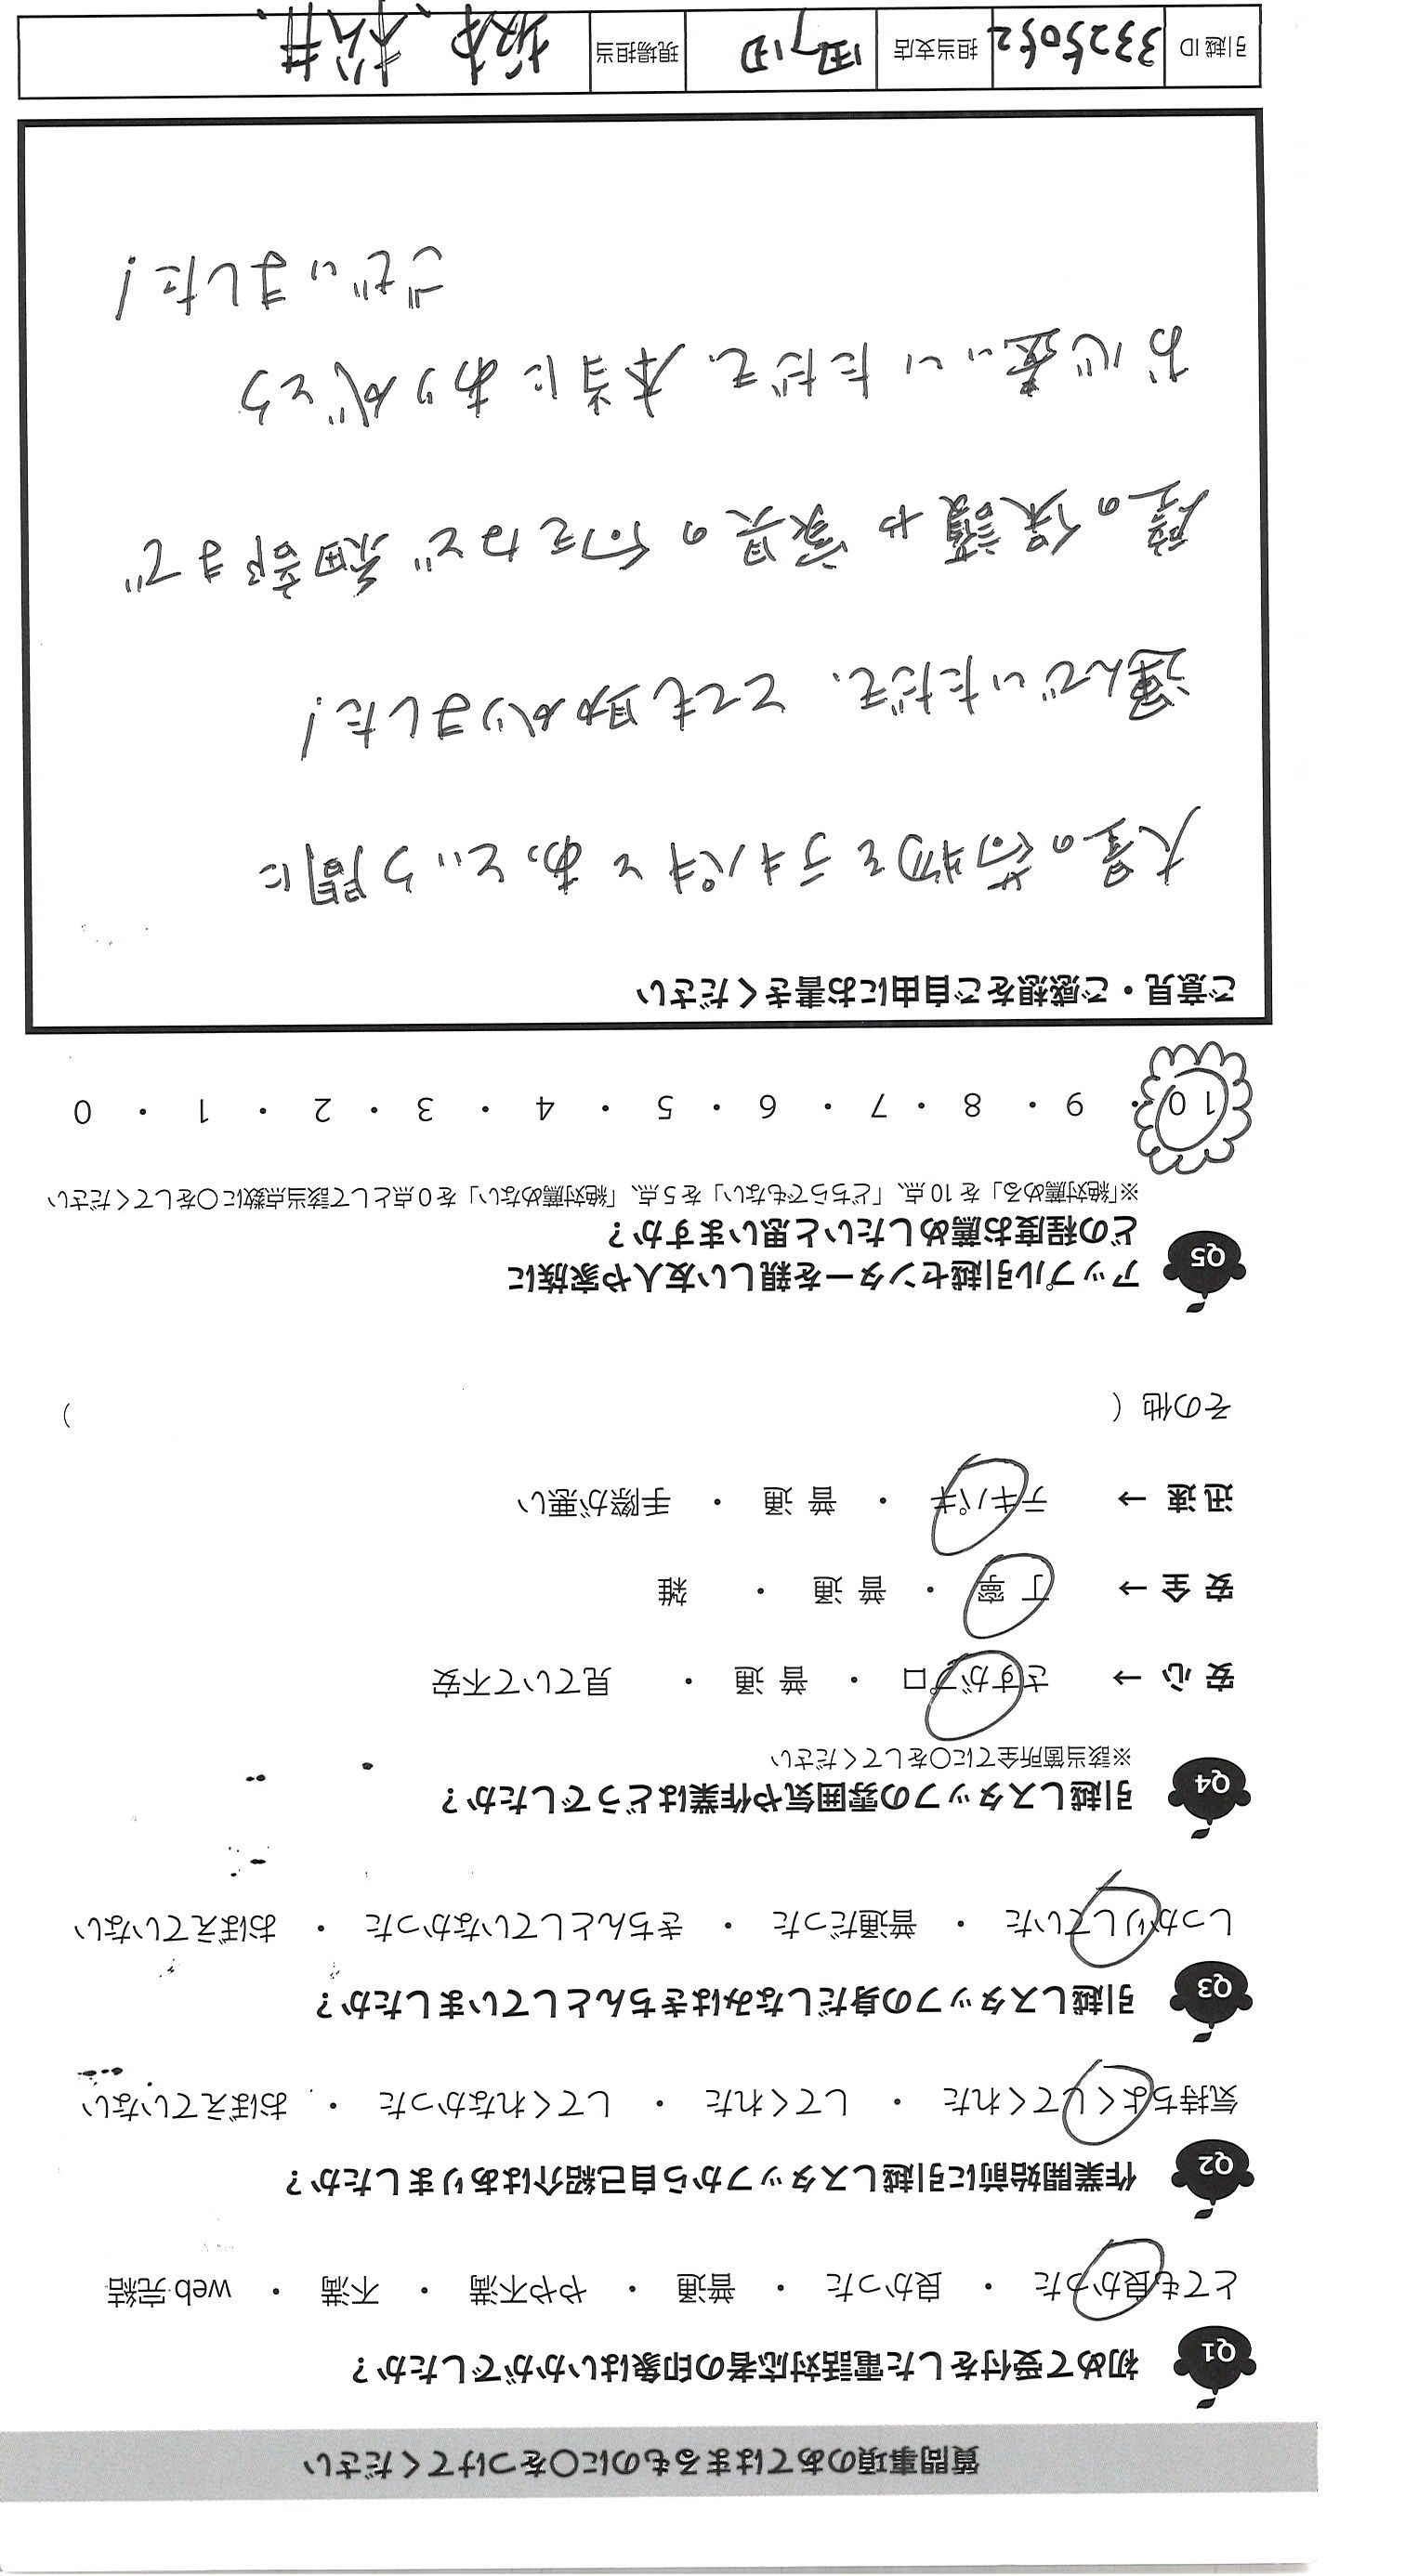 質問事項のあてはまるものに○をつけてください
Q1 初めて受付をした電話対応者の印象はいかがでしたか？
とても良かった ・ 良かった ・ 普通 ・ やや不満 ・ 不満 ・ web完結
Q2 作業開始前に引越しスタッフから自己紹介はありましたか？
気持ちよくしてくれた ・ してくれた ・ してくれなかった ・ おぼえていない
Q3 引越しスタッフの身だしなみはきちんとしていましたか？
しっかりしていた ・ 普通だった ・ きちんとしていなかった ・ おぼえていない
Q4 引越しスタッフの雰囲気や作業はどうでしたか？
※該当箇所全てに○をしてください
安心 → さすがプロ ・ 普通 ・ 見ていて不安
安全 → 丁寧 ・ 普通 ・ 雑
迅速 → テキパキ ・ 普通 ・ 手際が悪い
その他（ ）
Q5 アップル引越センターを親しい友人や家族に
どの程度お薦めしたいと思いますか？
※「絶対薦める」を10点、「どちらでもない」を5点、「絶対薦めない」を0点として該当点数に○をしてください
10 ・ 9 ・ 8 ・ 7 ・ 6 ・ 5 ・ 4 ・ 3 ・ 2 ・ 1 ・ 0
ご意見・ご感想をご自由にお書きください
大量の荷物をテキパキとあっという間に
運んでいただき、とても助かりました！
壁の保護や家具の向きなど細部まで
お心遣いいただき、本当にありがとう
ございました！
引越ID 3325052 担当支店 町田 現場担当 坂本、松井、